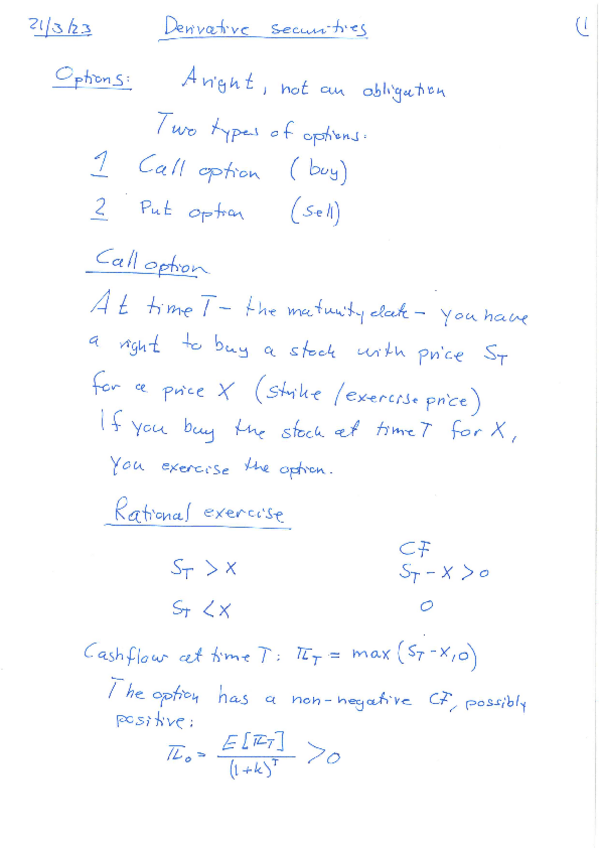 21/3/23 Derivative securities (1
Options: A right, not an obligation
Two types of options:
1 Call option (buy)
2 Put option (sell)
Call option
At time T - the maturity date - you have
a right to buy a stock with price S_T
for a price X (strike/exercise price)
If you buy the stock at time T for X,
you exercise the option.
Rational exercise
CF
S_T > X S_T - X > 0
S_T < X 0
Cashflow at time T: π_T = max(S_T - X, 0)
The option has a non-negative CF, possibly
positive:
π_0 = E[π_T] / (1+k)^T > 0